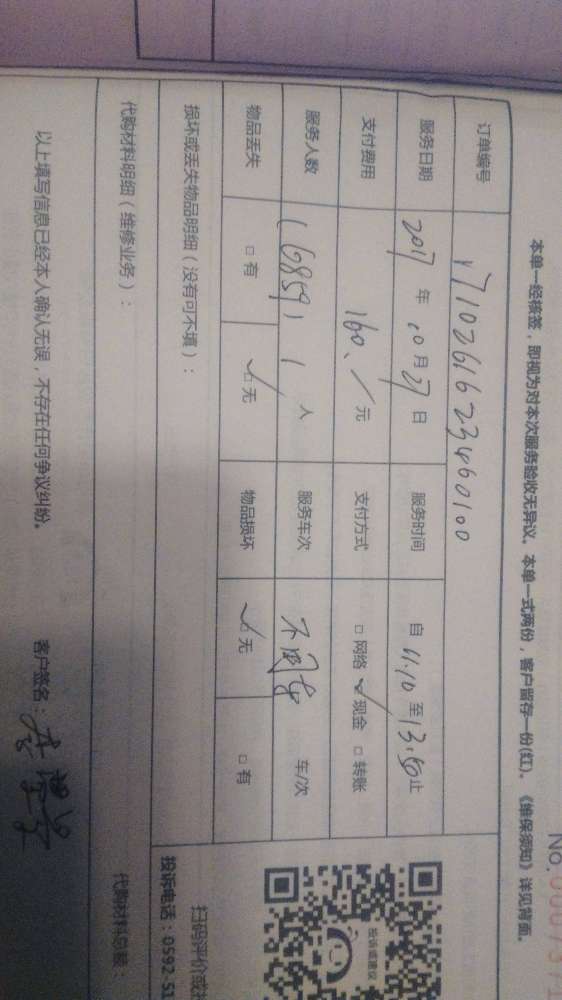 本单一经核签，即视为对本次服务验收无异议。本单一式两份，客户留存一份(红)。《维保须知》详见背面。
订单编号
服务日期 2017 年 10 月 27 日 服务时间 自 11.10 至 13.50 止
支付费用 160、/ 元 支付方式 □ 网络 ✓ 现金 □ 转账
服务人数 (6859) 1 人 服务车次 不用车 车/次
物品丢失 □ 有 ✓ 无 物品损坏 ✓ 无 □ 有
损坏或丢失物品明细（没有可不填）：
代购材料明细（维修业务）：
代购材料总额：
以上填写信息已经本人确认无误，不存在任何争议纠纷。 客户签名：
投诉电话：0592.51